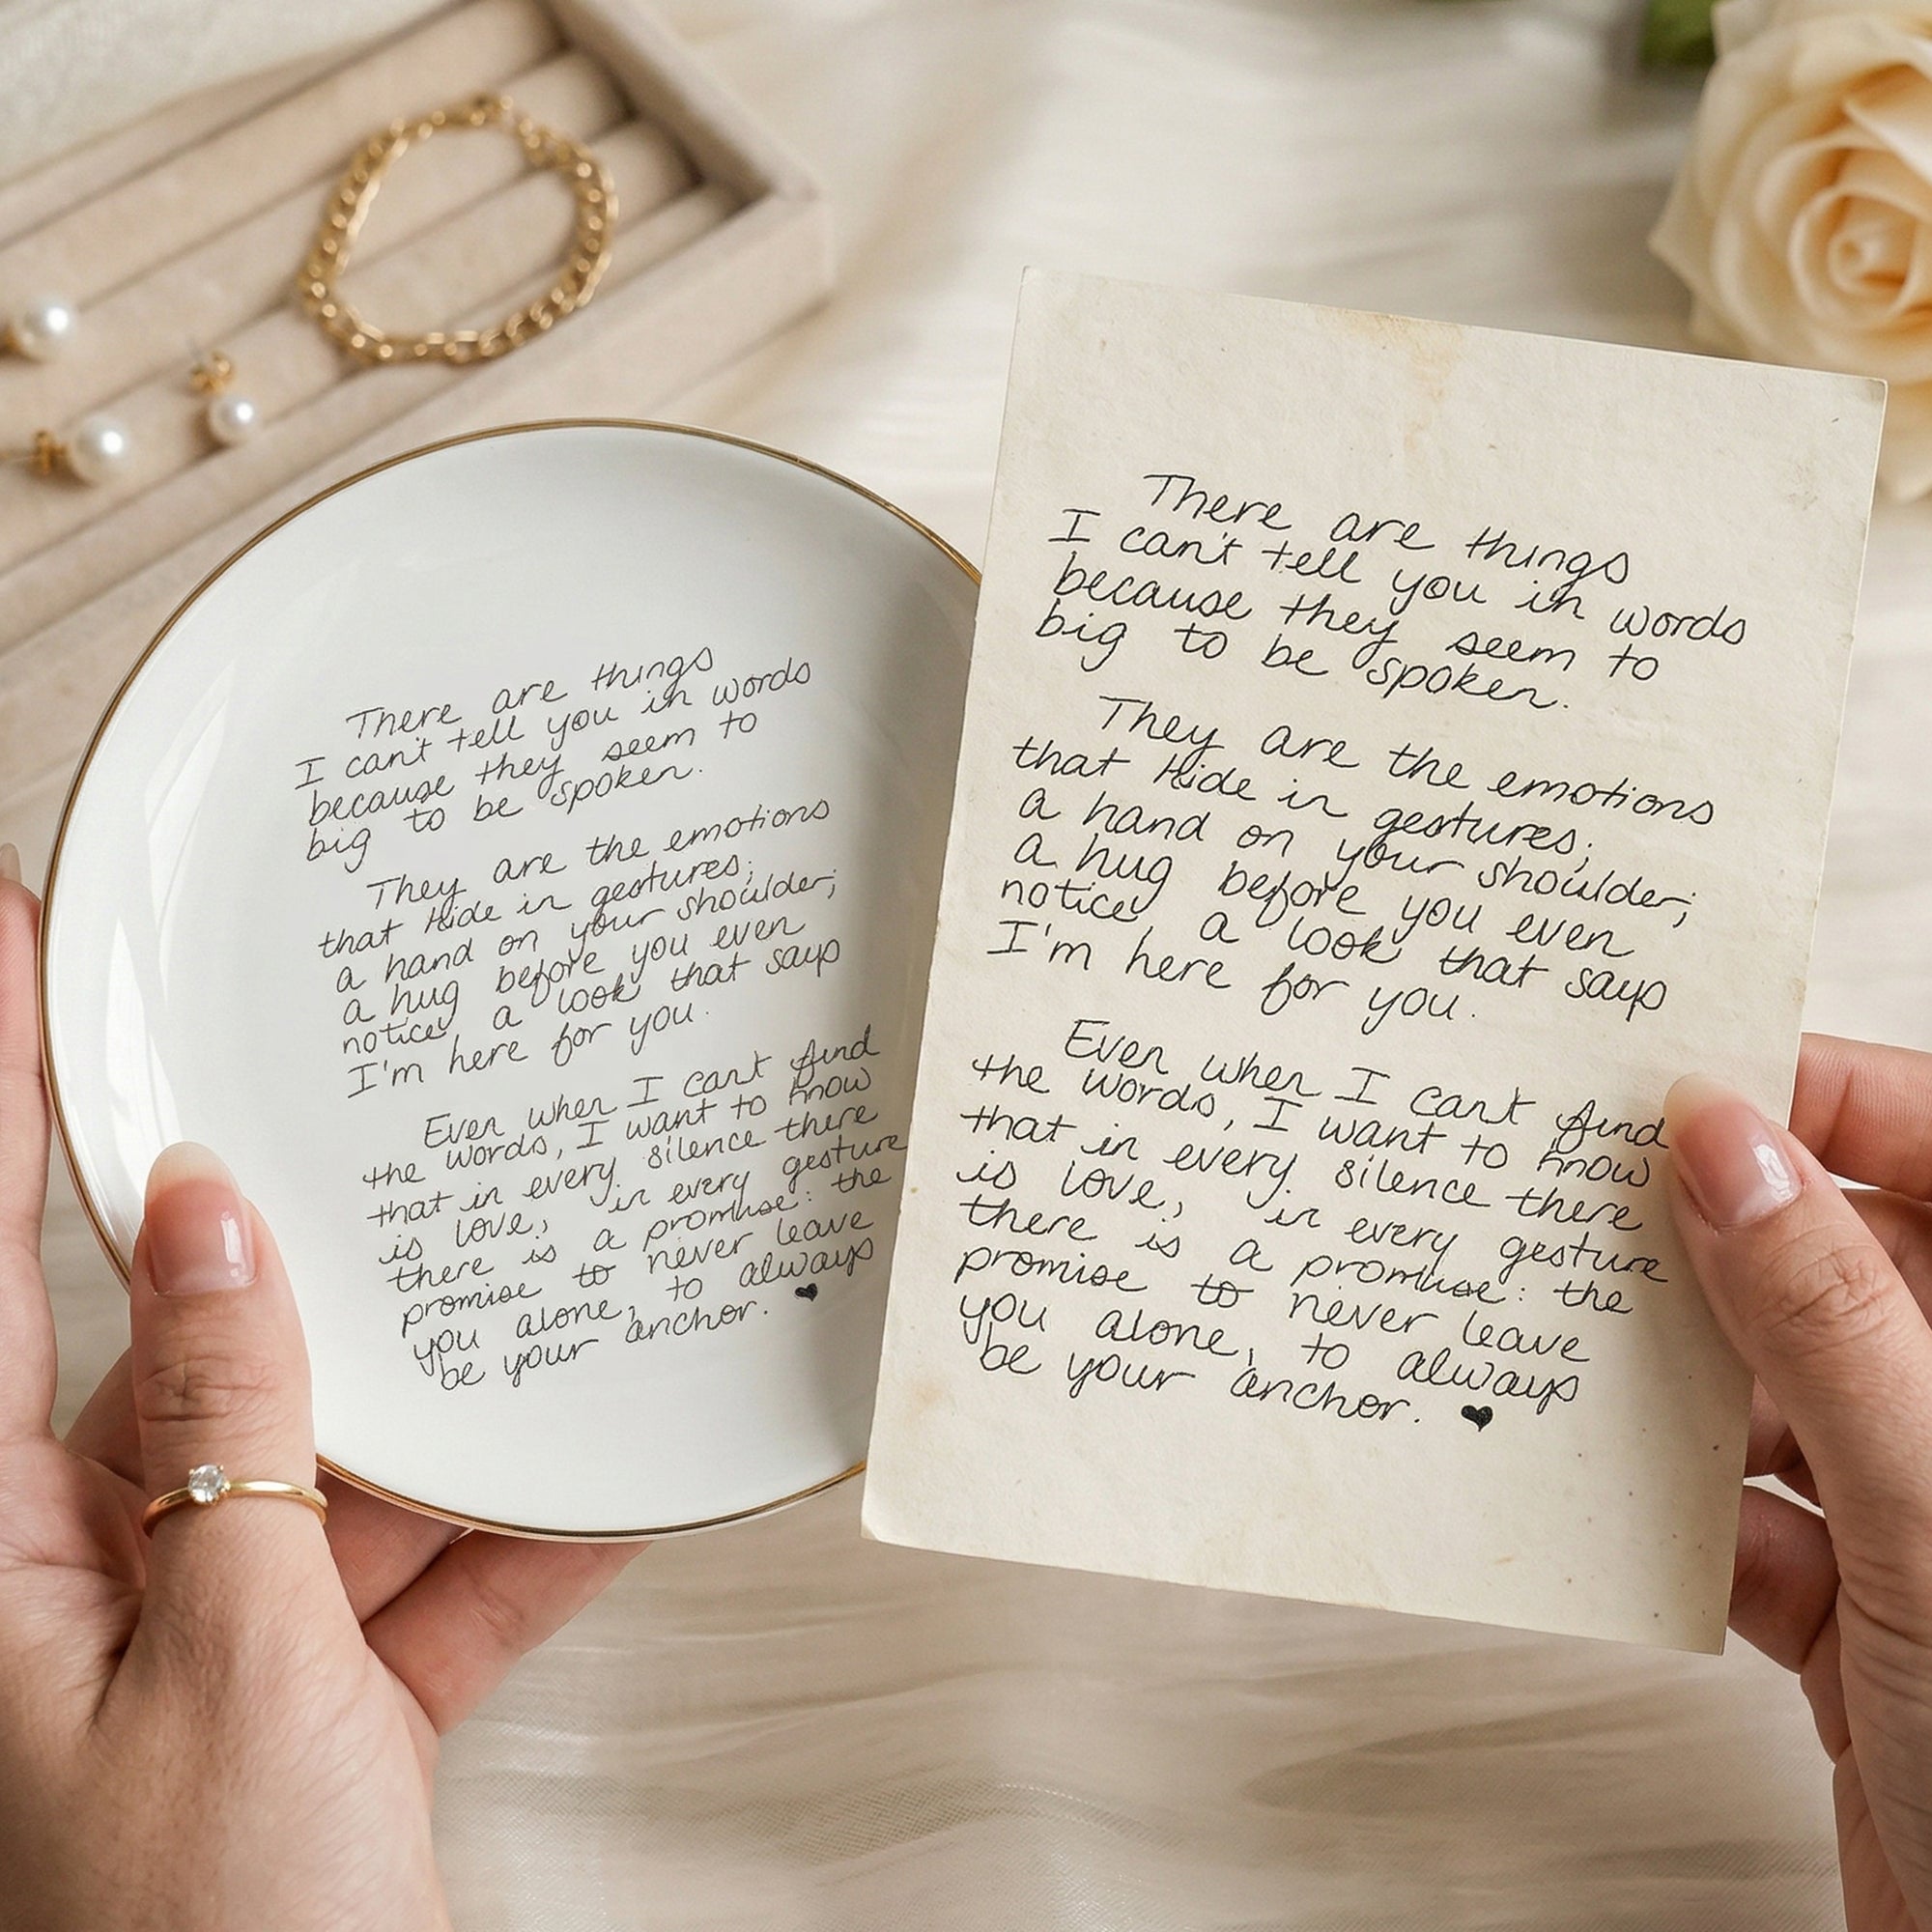 There are things
I can't tell you in words
because they seem to
big to be spoken.
They are the emotions
that hide in gestures;
a hand on your shoulder;
a hug before you even
notice, a look that says
I'm here for you.
Even when I can't find
the words, I want to know
that in every silence there
is love, in every gesture
there is a promise: the
promise to never leave
you alone, to always
be your anchor. ♥
There are things
I can't tell you in words
because they seem to
big to be spoken.
They are the emotions
that hide in gestures;
a hand on your shoulder;
a hug before you even
notice, a look that says
I'm here for you.
Even when I can't find
the words, I want to know
that in every silence there
is love, in every gesture
there is a promise: the
promise to never leave
you alone, to always
be your anchor. ♥